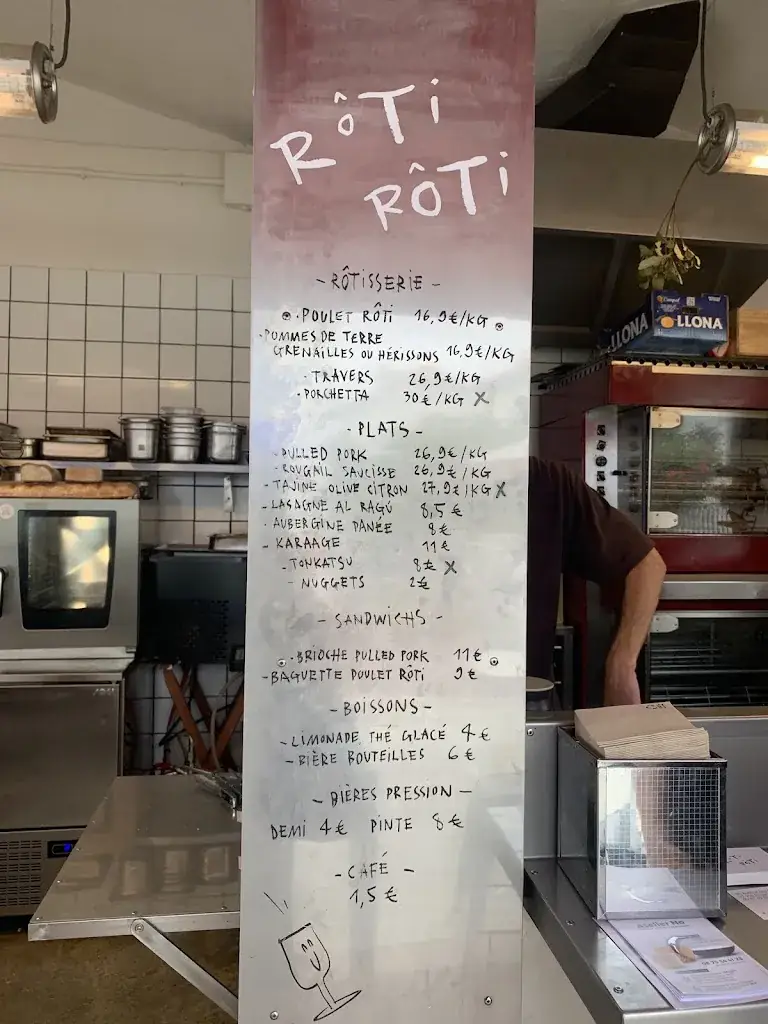 RÔTI
RÔTI
- RÔTISSERIE -
· POULET RÔTI 16,9€/KG
· POMMES DE TERRE
GRENAILLES OU HÉRISSONS 16,9€/KG
· TRAVERS 26,9€/KG
· PORCHETTA 30€/KG X
- PLATS -
- PULLED PORK 26,9€/KG
- ROUGAIL SAUCISSE 26,9€/KG
- TAJINE OLIVE CITRON 27,9€/KG X
- LASAGNE AL RAGÚ 8,5€
· AUBERGINE PANÉE 8€
- KARAAGE 11€
- TONKATSU 8€ X
- NUGGETS 2€
- SANDWICHS -
· BRIOCHE PULLED PORK 11€
- BAGUETTE POULET RÔTI 9€
- BOISSONS -
- LIMONADE THÉ GLACÉ 4€
- BIÈRE BOUTEILLES 6€
- BIÈRES PRESSION -
DEMI 4€ PINTE 8€
- CAFÉ -
1,5€
LLONA
LLONA